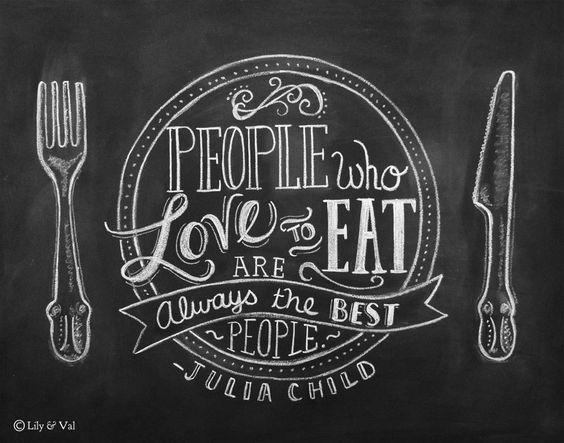 PEOPLE who
Love TO EAT
ARE
Always the BEST
~PEOPLE.~
-JULIA CHILD
© Lily & Val